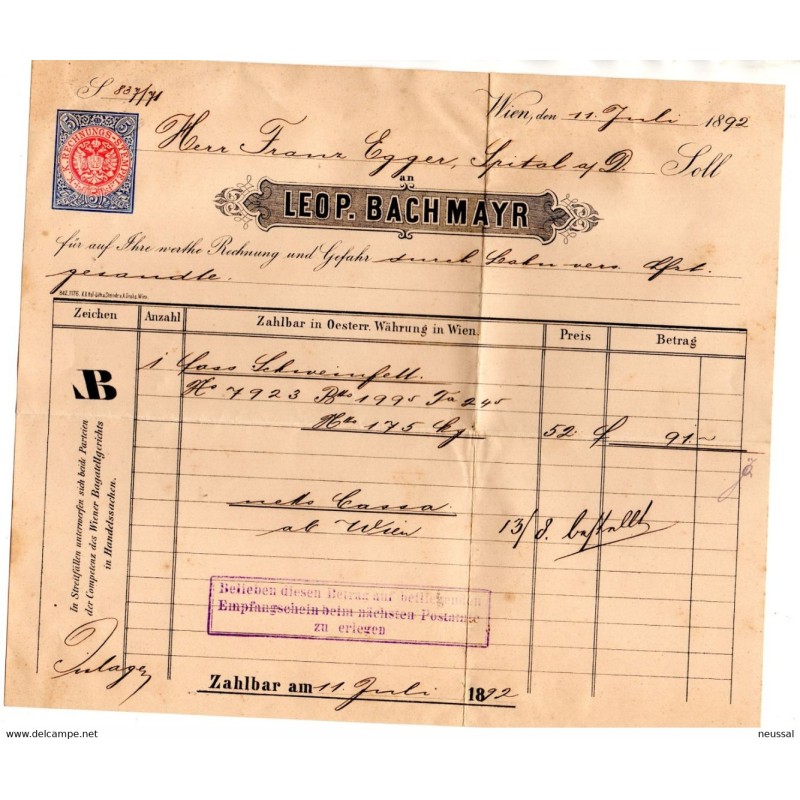 S 837/71
5 K.K. RECHNUNGS-STEMPEL 5
Wien, den 11. Juli 1892
Herr Franz Egger, Spital a/D. Soll
an
LEOP. BACHMAYR
für auf Ihre werthe Rechnung und Gefahr durch Bahn
gesandte.
Zeichen Anzahl Zahlbar in Oesterr. Währung in Wien. Preis Betrag
1 Fass Schweinfett.
No 7923 Bto 199 5 Ta 24 5
Nto 175 Kg 52. f 91.–
LB
In Streitfällen unterwerfen sich beide Parteien
der Competenz des Wiener Bagatellgerichts
in Handelssachen.
netto Cassa.
ab Wien 13/8.
Belieben diesen Betrag auf beiliegenden
Empfangschein beim nächsten Postamte
zu erlegen
Zahlbar am 11. Juli 1892
www.delcampe.net
neussal